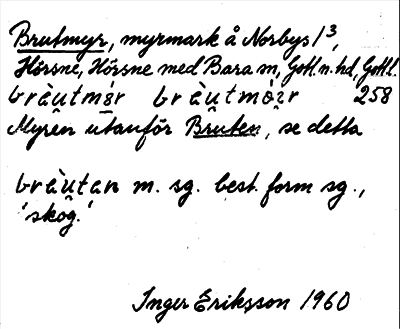 Brutmyr, myrmark å Norbys 1³,
Hörsne, Hörsne med Bara sn, Gotl. n. hd, Gotl.
bràu̯tmȯ́r bràu̯tmȯ̀ır 258
Myren utanför Bruten, se detta
bràu̯tan m. sg. best. form sg.,
'skog.'
Inger Eriksson 1960